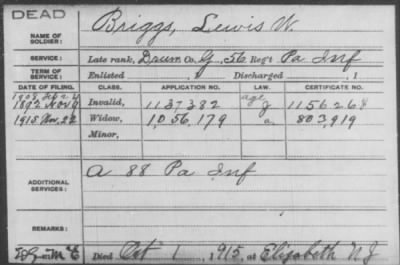 DEAD
NAME OF SOLDIER: Briggs, Lewis W.
SERVICE: Late rank, Drum Co. G, 56 Reg't Pa Inf
TERM OF SERVICE: Enlisted , 1 Discharged , 1
DATE OF FILING. CLASS. APPLICATION NO. LAW. CERTIFICATE NO.
1908
1892 Nov Invalid, 1137382 1156268
1915 Nov. 22 Widow, 1,056,179 803,919
Minor,
ADDITIONAL SERVICES: A 88 Pa Inf
REMARKS:
Died Oct 1, 1915, at Elizabeth NJ